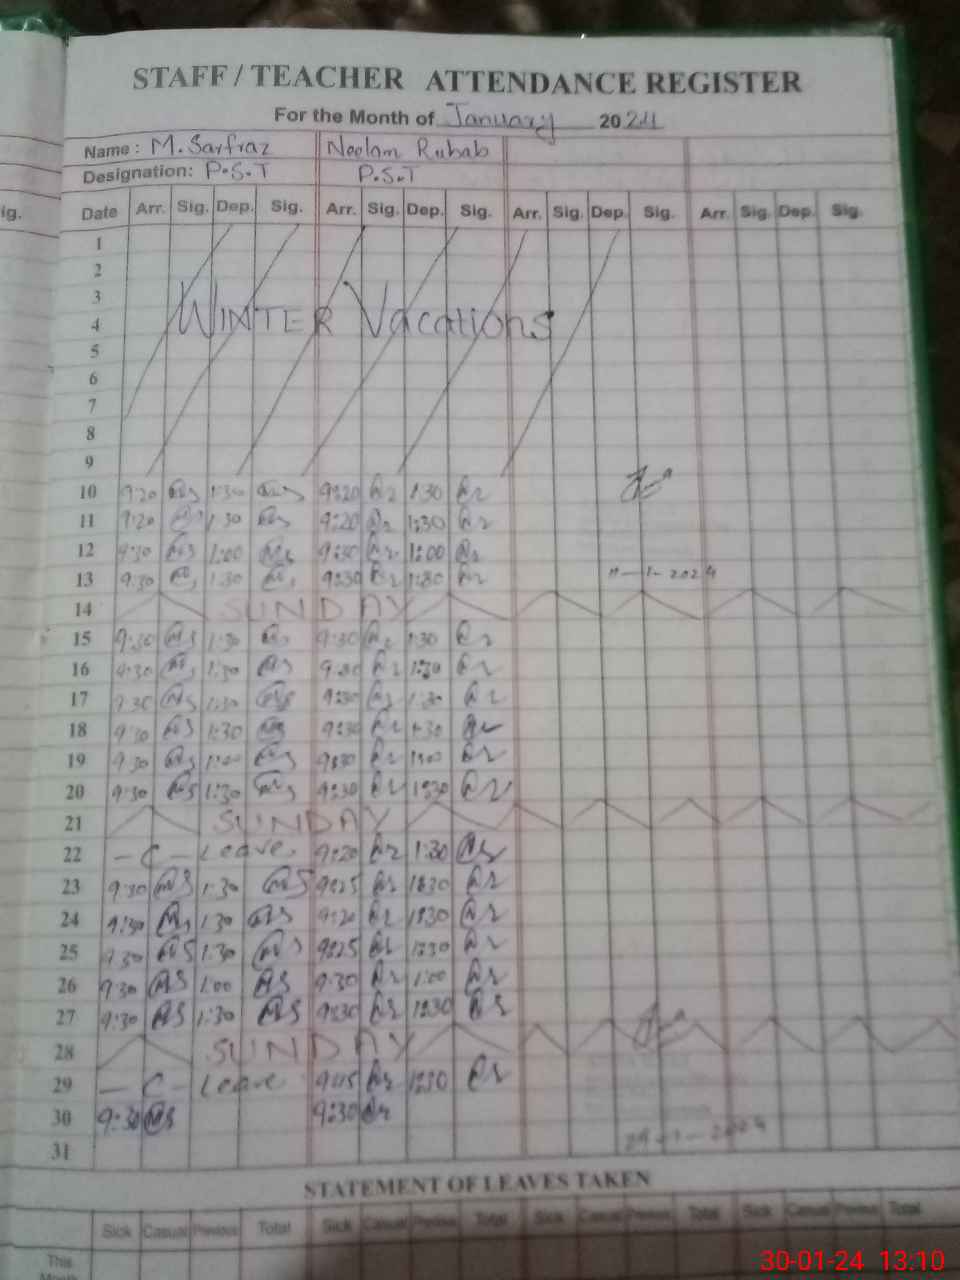 STAFF / TEACHER ATTENDANCE REGISTER
For the Month of January 2024
Name: M. Sarfraz Neelam Rubab
Designation: P.S.T P.S.T
ig. Date Arr. Sig. Dep. Sig. Arr. Sig. Dep. Sig. Arr. Sig. Dep. Sig. Arr. Sig. Dep. Sig.
1
2
3
WINTER Vacations
4
5
6
7
8
9
10 9:20 1:30 9:20 1:30
11 9:20 1:30 9:20 1:30
12 9:30 1:00 9:30 1:00
13 9:30 1:30 9:30 1:30 11-1-2024
14 SUNDAY
15 9:30 1:30 9:30 1:30
16 9:30 1:30 9:30 1:30
17 9:30 1:30 9:30 1:30
18 9:30 1:30 9:30 1:30
19 9:30 1:00 9:30 1:00
20 9:30 1:30 9:30 1:30
21 SUNDAY
22 - C - Leave. 9:20 1:30
23 9:30 1:30 9:25 1:30
24 9:30 1:30 9:20 1:30
25 9:30 1:30 9:25 1:30
26 9:30 1:00 9:30 1:00
27 9:30 1:30 9:30 1:30
28 SUNDAY
29 - C - Leave 9:15 1:30
30 9:30 9:30
31 29-1-2024
STATEMENT OF LEAVES TAKEN
Sick Casual Previous Total Sick Casual Previous Total Sick Casual Previous Total Sick Casual Previous Total
This
Month
30-01-24 13:10